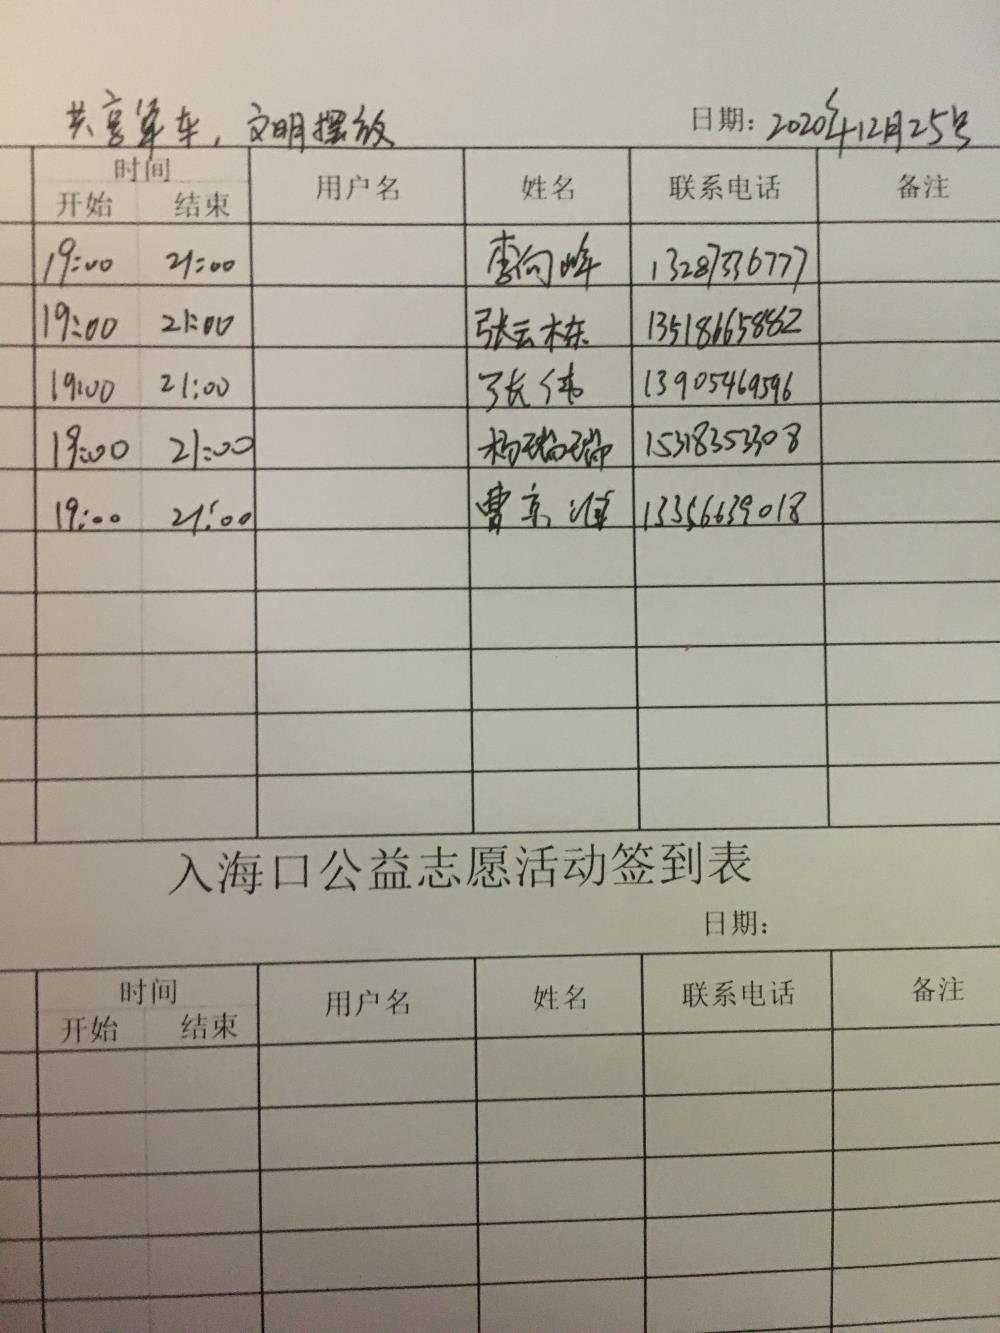 共享单车，文明摆放 日期：2020年12月25号
时间 用户名 姓名 联系电话 备注
开始 结束
19:00 21:00 李向峰 13287336777
19:00 21:00 张云栋 13518665862
19:00 21:00 张伟 13905469596
19:00 21:00 杨瑞瑞 15318353308
19:00 21:00 曹京 13356639018
入海口公益志愿活动签到表
日期：
时间 用户名 姓名 联系电话 备注
开始 结束